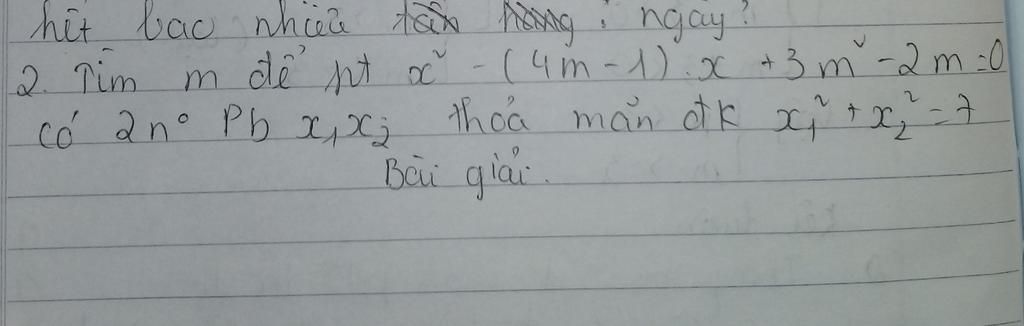 hết bao nhiêu ngày?
2. Tìm m để pt x² - (4m-1).x + 3m² - 2m = 0
có 2n° Pb x₁, x₂ thỏa mãn đk x₁² + x₂² = 7
Bài giải.